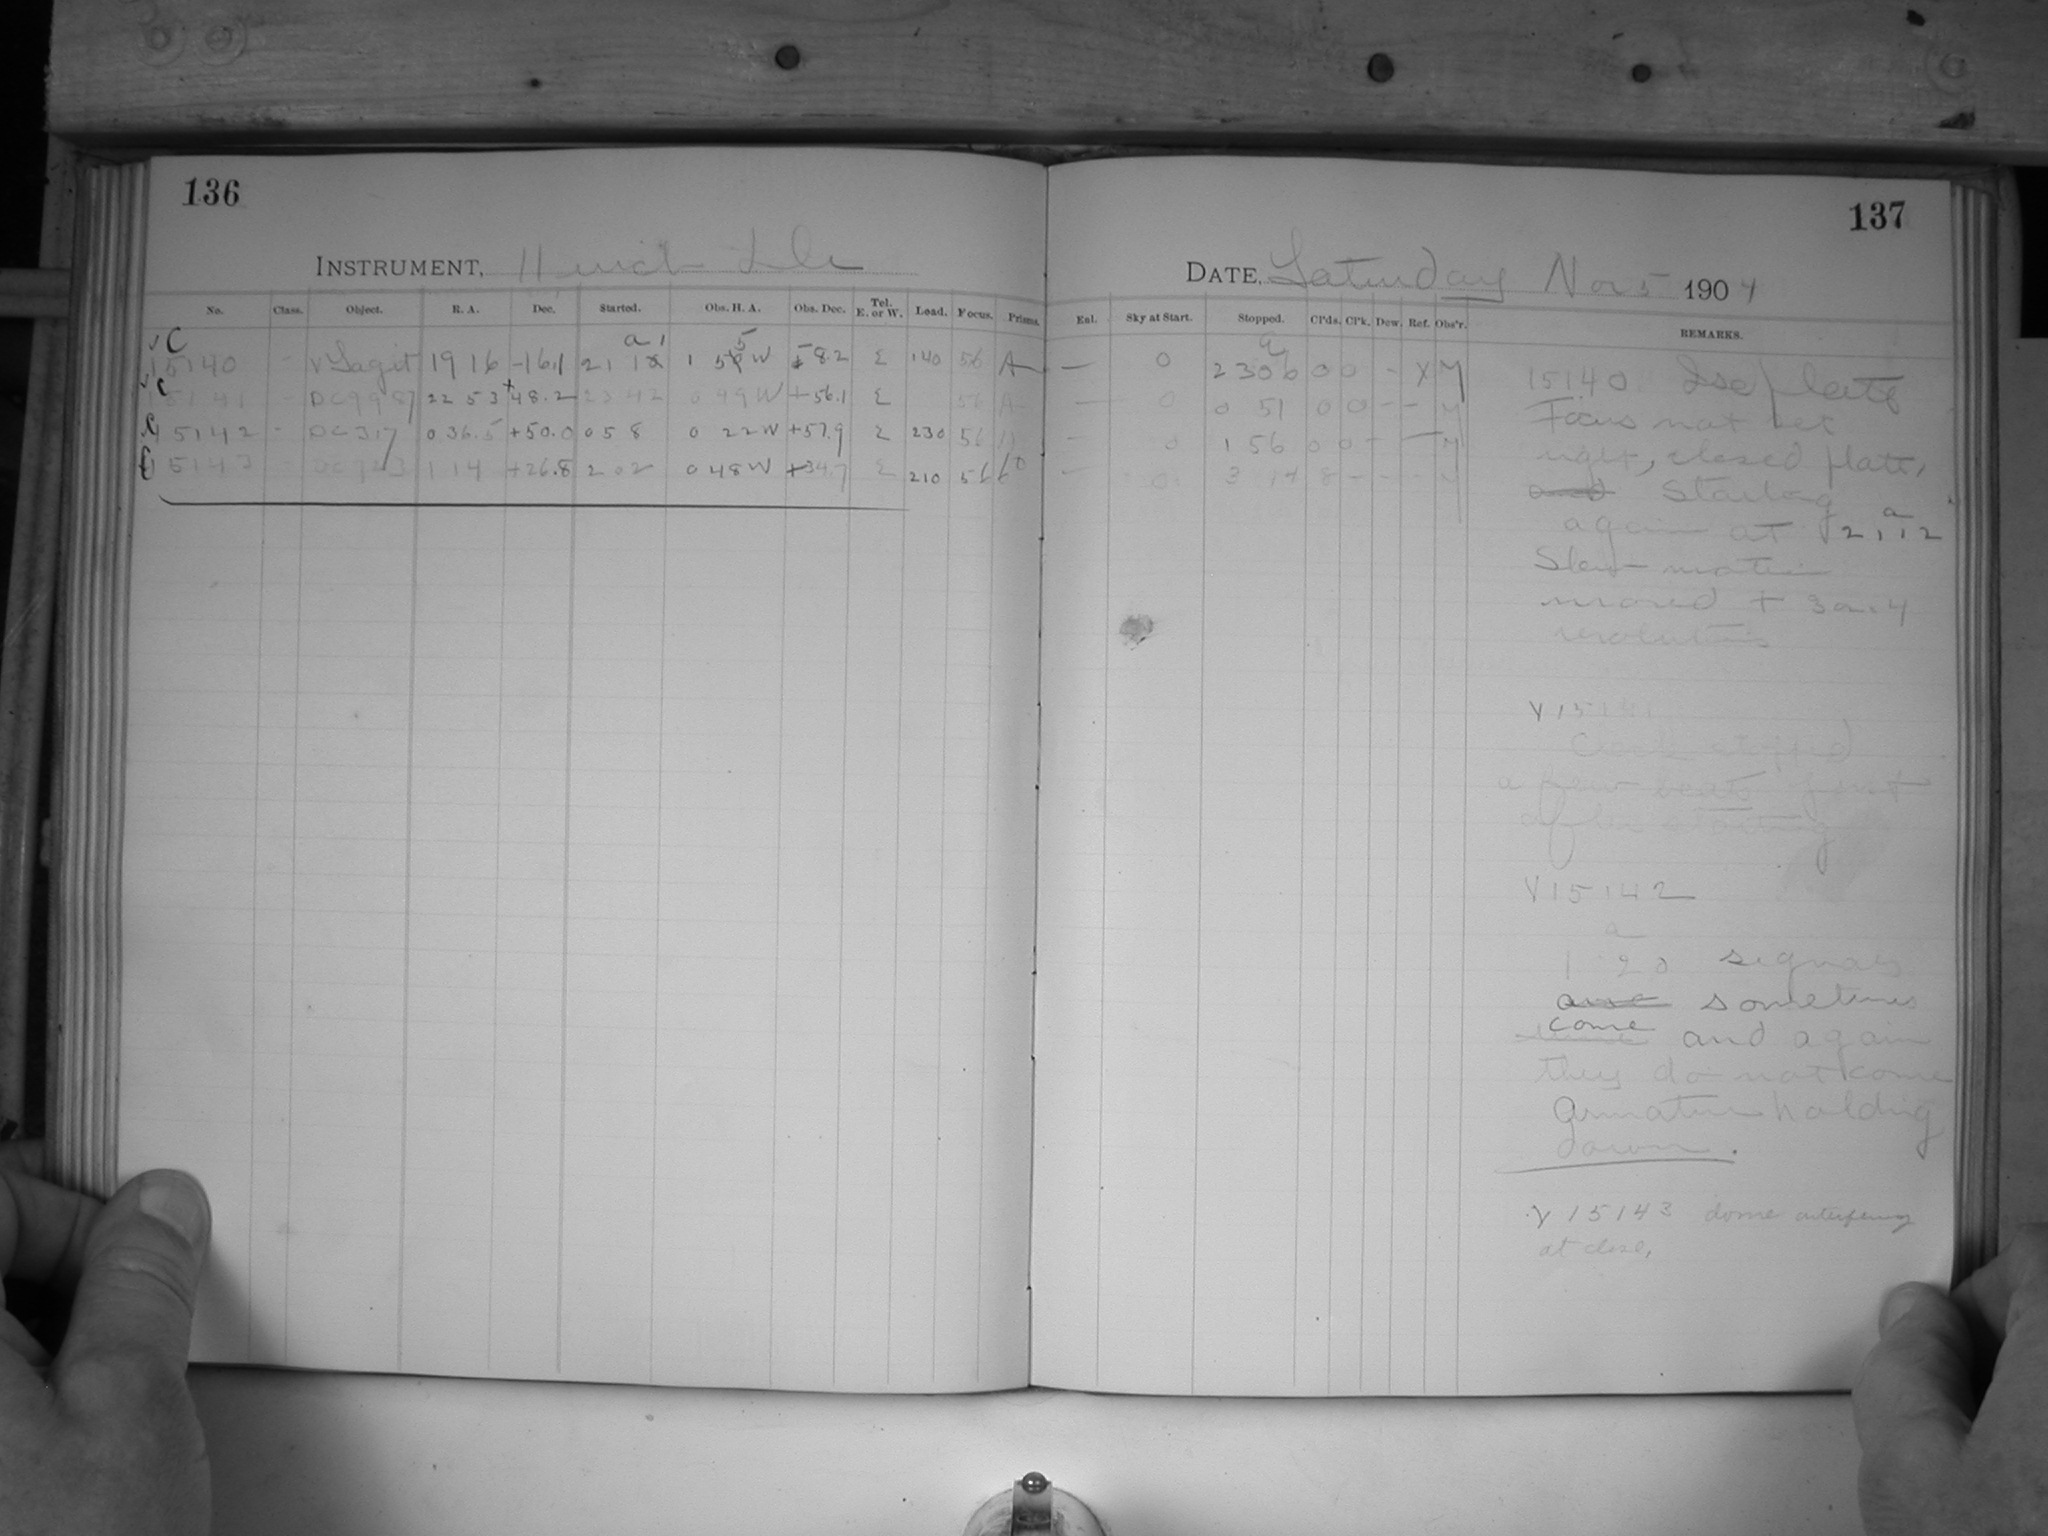 136
137
INSTRUMENT, 11 inch Tele
DATE, Saturday Nov 5 1904
No. Class. Object. R. A. Dec. Started. Obs. H. A. Obs. Dec. Tel. E. or W. Load. Focus. Prisms. Enl. Sky at Start. Stopped. Cl'ds. Cl'k. Dew. Ref. Obs'r. REMARKS.
15140 - v Sagit 19 16 -16.1 21 12 1 55 W -8.2 E 140 56 A — 0 2306 0 0 - X M
15141 - DC9987 22 53 +48.2 22 42 0 49 W +56.1 E 56 A — 0 0 51 0 0 - - M
15142 - DC317 0 36.5 +50.0 0 58 0 22 W +57.9 E 230 56 — 0 1 56 0 0 - — M
15143 - 1 14 +26.8 2 02 0 48 W +34.7 E 210 56 — 0 3 14 8 - - - M
15140 Iso plate
Focus not set
right, closed plate,
and starting
again at 21 12
Slow motion
moved + 3 or 4
revolutions
V 15141
Clock stopped
a few beats just
after starting
V 15142
1 20 signals
sometimes
come and again
they do not come
armature holding
down.
V 15143 dome interfering
at close,